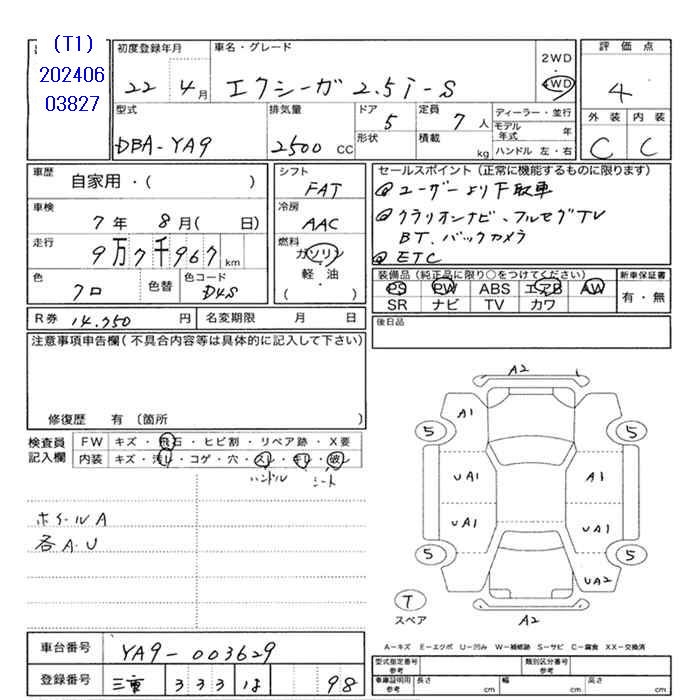 (T1)
202406
03827
初度登録年月
22 4月
車名・グレード
エクシーガ 2.5i-S
2WD
・
4WD
評価点
4
外装 内装
C C
型式
DBA-YA9
排気量
2500 CC
ドア 5
形状
定員 7 人
積載 kg
ディーラー・並行
モデル年式 年
ハンドル 左・右
車歴
自家用・( )
車検
7年 8月( 日)
走行
9万7千967 km
色
クロ
色替
色コード
D4S
シフト
FAT
冷房
AAC
燃料
ガソリン
軽・油
( )
セールスポイント(正常に機能するものに限ります)
@ユーザーより下取車
@クラリオンナビ、フルセグTV
BT.バックカメラ
@ETC
装備品(純正品に限り○をつけてください)
PS PW ABS エアB AW
SR ナビ TV カワ
新車保証書
有・無
R券 14,750 円
名変期限 月 日
後日品
注意事項申告欄(不具合内容等は具体的に記入して下さい)
修復歴 有 〔箇所 〕
検査員
記入欄
FW キズ・飛石・ヒビ割・リペア跡・X要
内装 キズ・汚レ・コゲ・穴・スレ・キレ・破レ
ハンドル シート
ホイールA
各A.U
A2
A1
5 5
UA1 A1
UA1 UA1
5 5
UA2
T
スペア
A2
A-キズ E-エクボ U-凹み W-補修跡 S-サビ C-腐食 XX-交換済
車台番号 YA9-003629
登録番号 三重 333 は 98
型式指定番号
参考
類別区分番号
参考
車庫証明用
参考
長さ cm 幅 cm 高さ cm